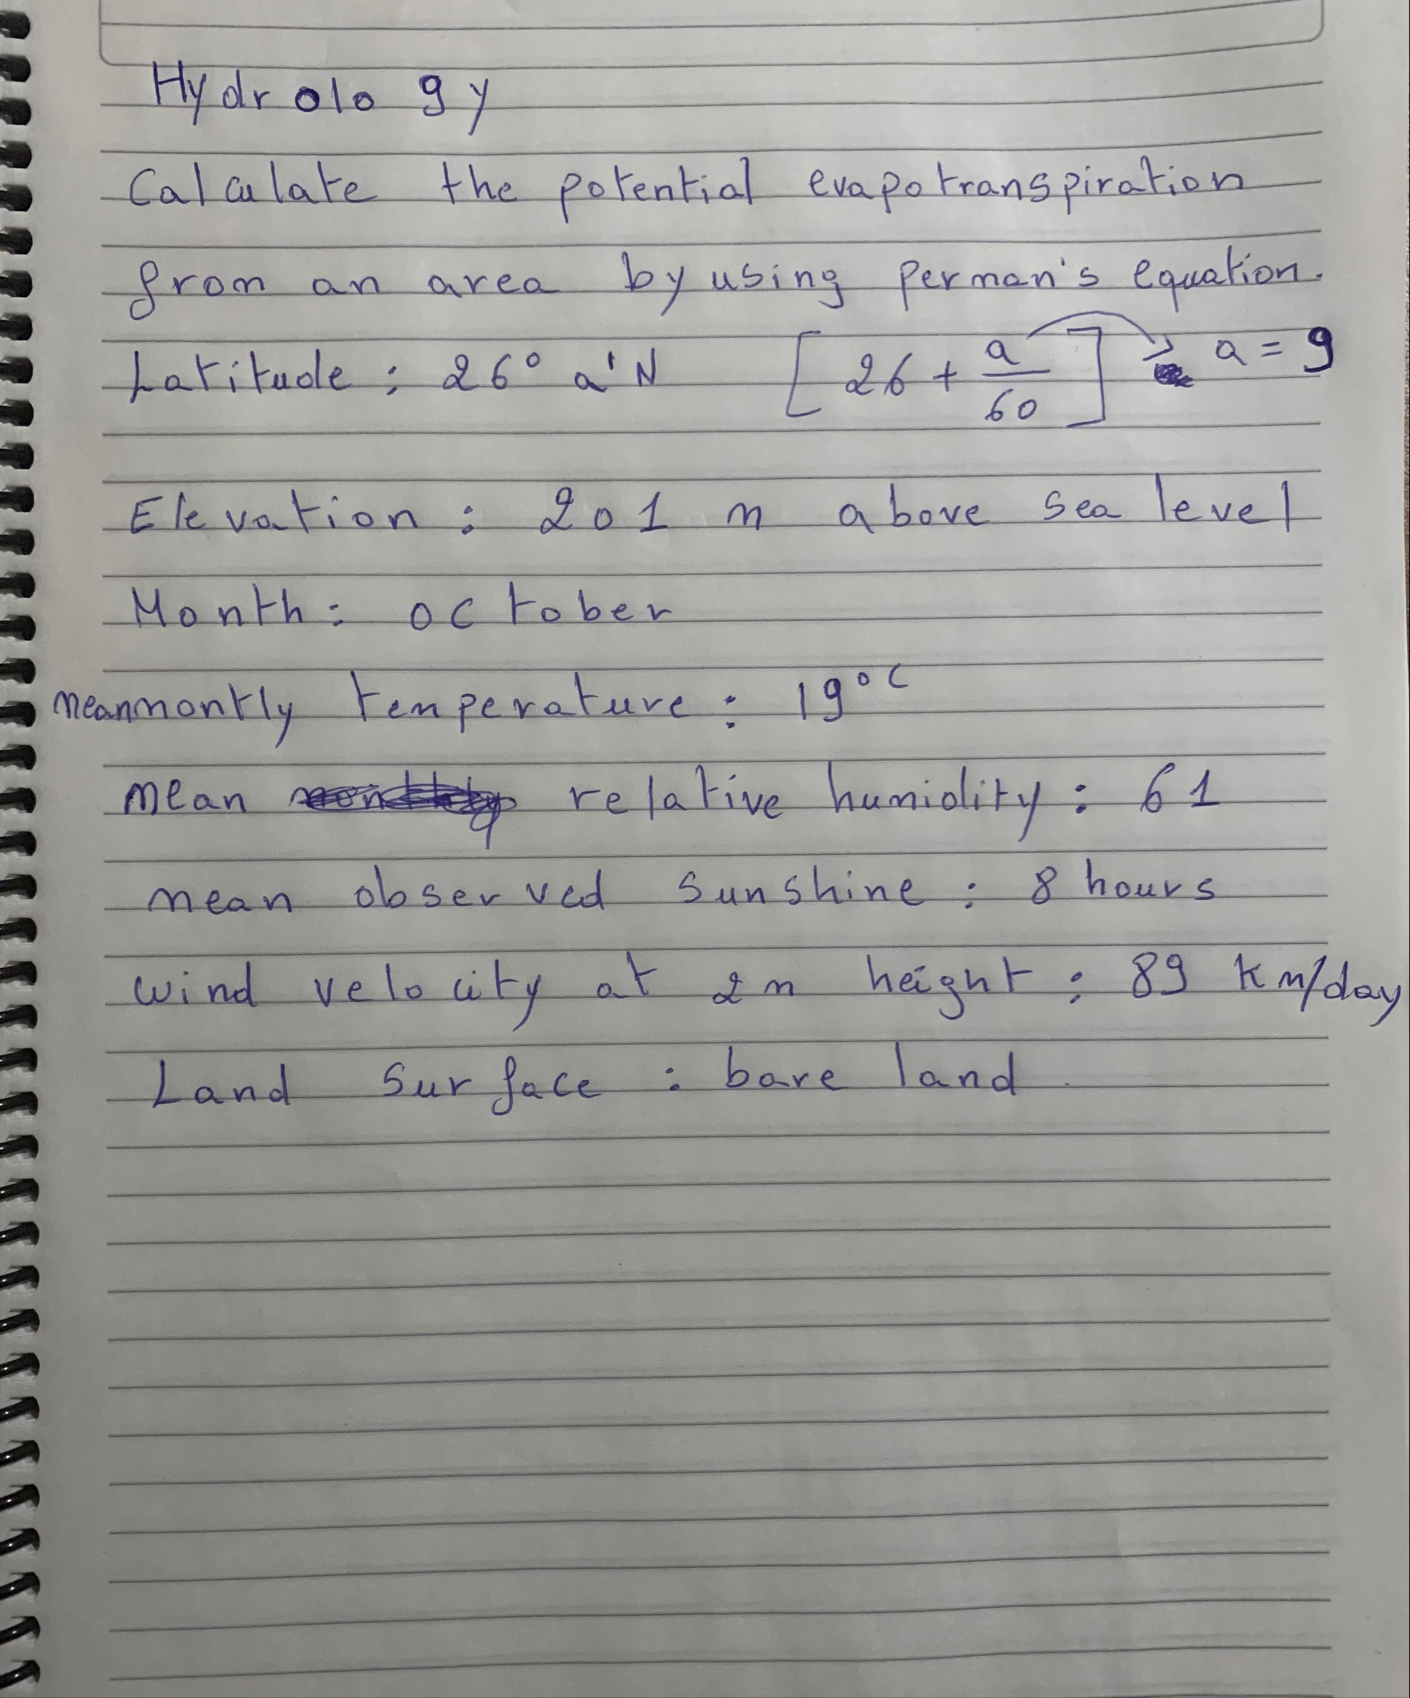 Hydrology
Calculate the potential evapotranspiration
from an area by using perman's equation.
Latitude : 26° a'N [26 + a/60] → a = 9
Elevation : 201 m above sea level
Month : october
meanmontly temperature : 19°C
mean relative humidity : 61
mean observed sunshine : 8 hours
wind velocity at 2m height : 89 Km/day
Land surface : bare land